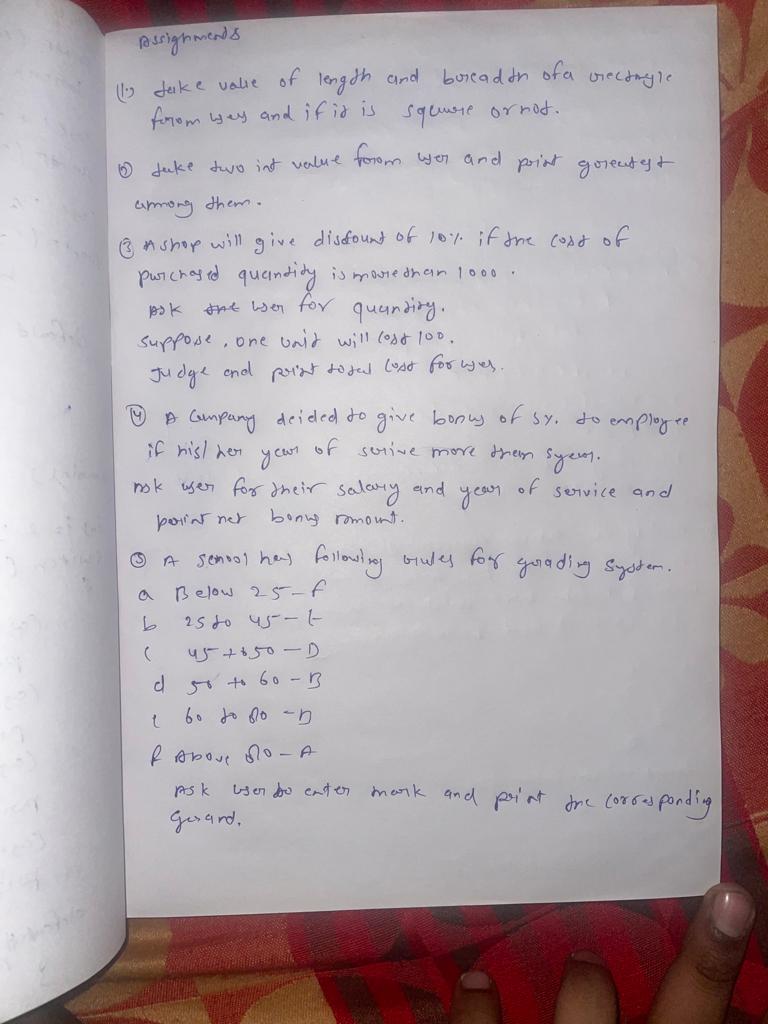 Assignments
(1.) take value of length and breadth of a rectangle
from user and if it is square or not.
(2) take two int value from user and print greatest
among them.
(3) A shop will give discount of 10% if the cost of
purchased quantity is more than 1000.
Ask the user for quantity.
Suppose, one unit will cost 100.
Judge and print total cost for user.
(4) A Company deided to give bonus of 5%. to employee
if his/her year of serive more than 5 year.
Ask user for their salary and year of service and
print net bonus amount.
(5) A school has following rules for grading system.
a Below 25 - F
b 25 to 45 - E
c 45 to 50 - D
d 50 to 60 - B
e 60 to 80 - B
f Above 80 - A
Ask user to enter mark and print the corresponding